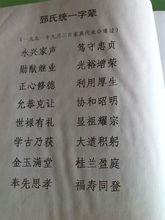 邳氏统一字辈
(一九九一年九月二日家族代表会通过)
永兴家声 笃守忠贞
勋猷继业 光裕增荣
正心修德 利用厚生
允恭克让 协和昭明
世禄有礼 显荣国本
学古乃获 大道积躬
金玉满堂 桂兰盈庭
奉先思孝 福寿同登